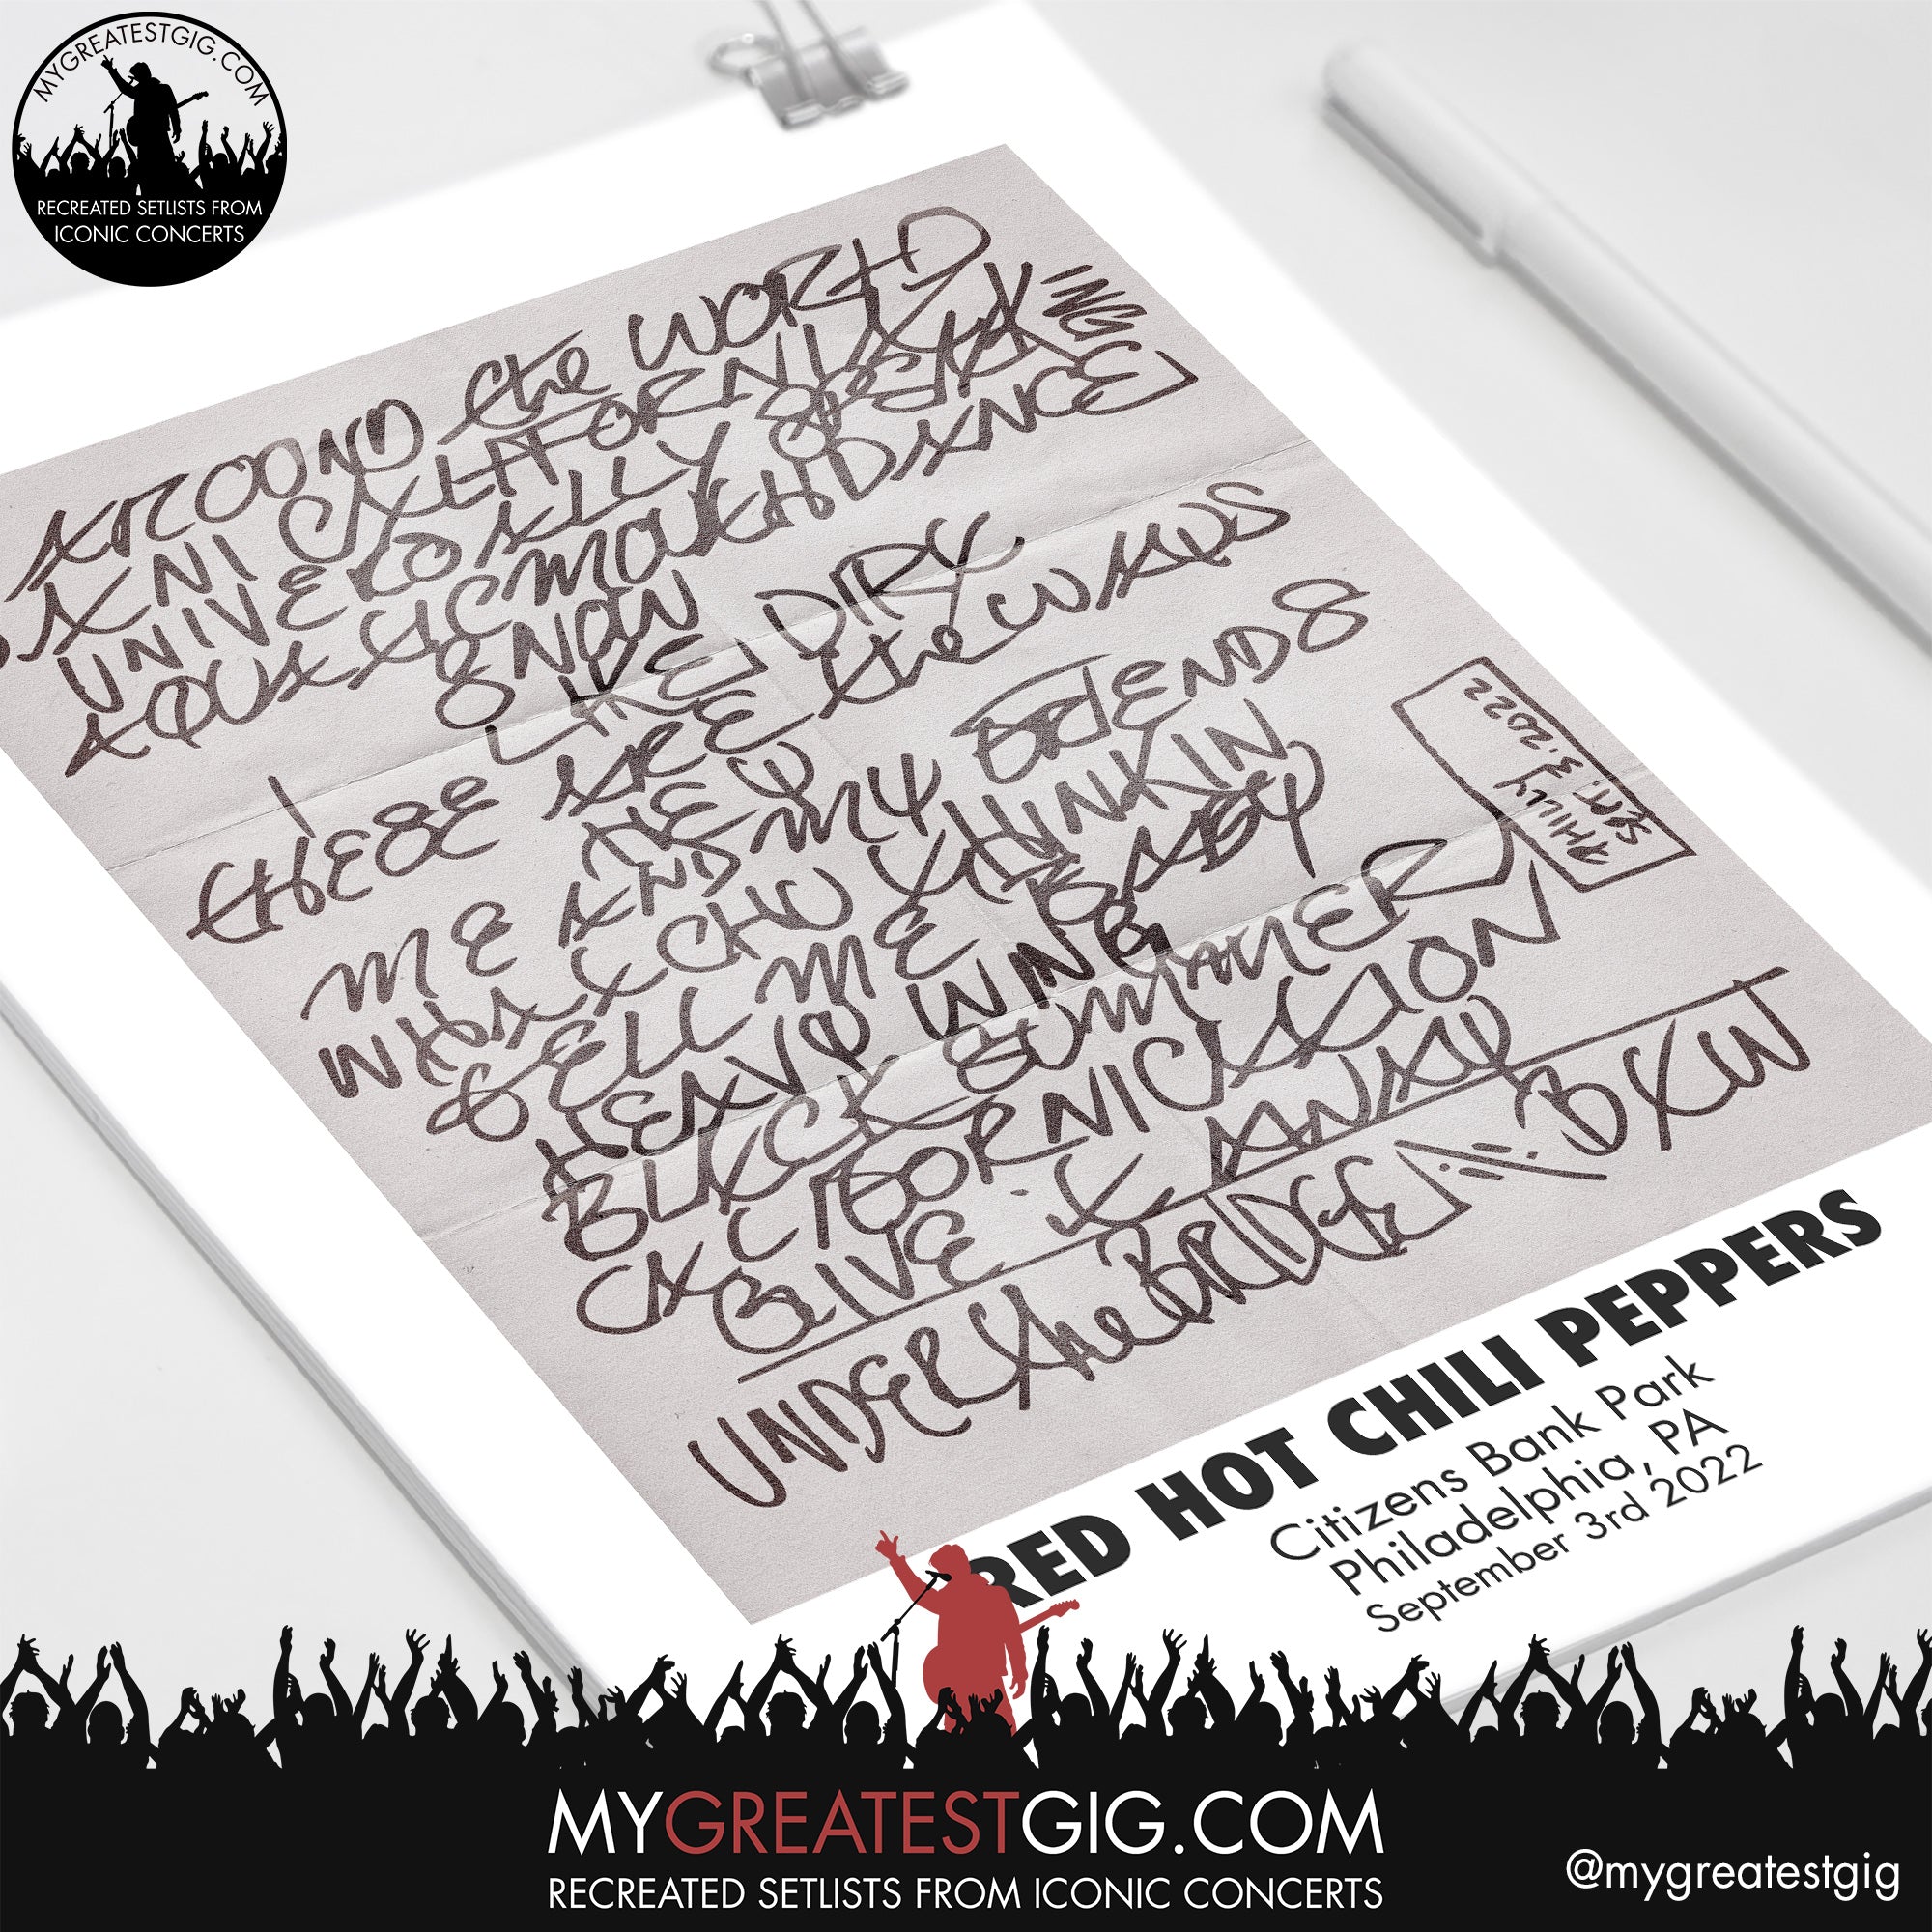 MYGREATESTGIG.COM
RECREATED SETLISTS FROM
ICONIC CONCERTS
AROUND the WORLD
DANI CALIFORNIA
UNIVERSALLY SPEAKING
AQUATIC MOUTH DANCE
SNOW
I LIKE DIRT
THESE ARE the WAYS
HEY
ME AND MY FRIENDS
WHATCHU THINKIN
TELL ME BABY
HEAVY WING
BLACK SUMMER
CALIFORNICATION
GIVE IT AWAY
UNDER the BRIDGE
BYW
PHILLY
SEPT. 3, 2022
RED HOT CHILI PEPPERS
Citizens Bank Park
Philadelphia, PA
September 3rd 2022
MYGREATESTGIG.COM
RECREATED SETLISTS FROM ICONIC CONCERTS
@mygreatestgig